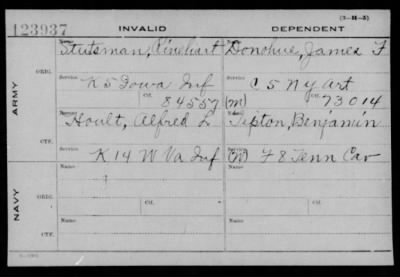 (3-H-5)
123937 INVALID DEPENDENT
Name: Stutsman, Rinehart Donohue, James F
ORIG.
ARMY
Service: K 5 Iowa Inf C 5 N Y Art
Ctf. 84557 (M) Ctf. 73014
Hoult, Alfred L Tipton, Benjamin
CTF.
Service: K 14 W Va Inf (M) F 8 Tenn Cav
NAVY
ORIG.
Name: Name:
Service: Ctf. Service: Ctf.
Name: Name:
CTF.
Service: Service: